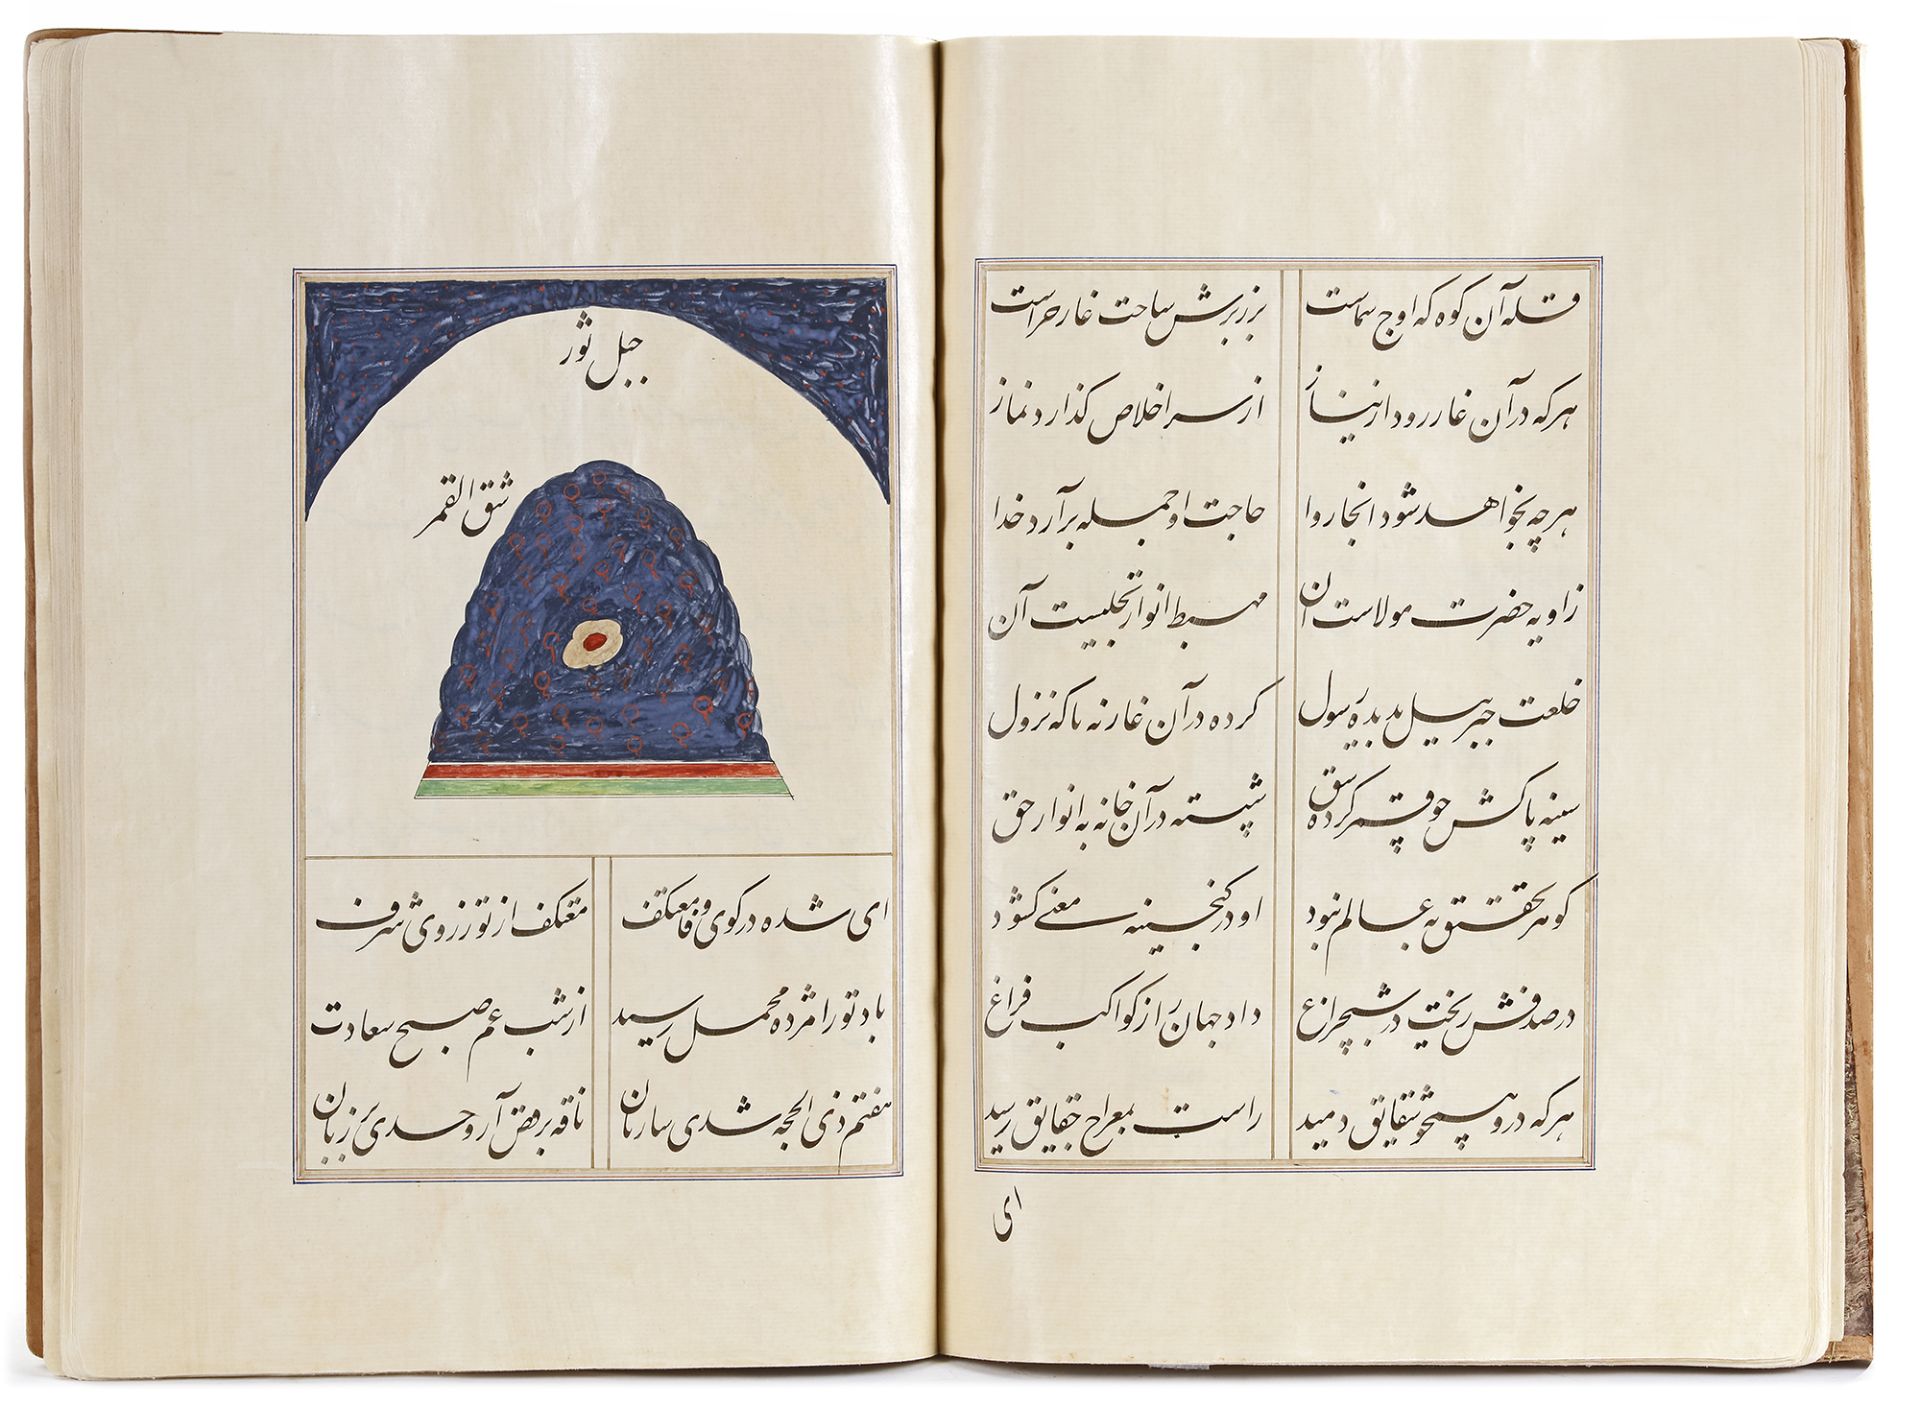 قله آن کوه که اوج سماست
بر زبرش ساحت غار حراست
هرکه در آن غار رود از نیاز
از سر اخلاص گذارد نماز
هرچه بخواهد شود انجا روا
حاجت او جمله برآرد خدا
زاویه حضرت مولاست آن
مهبط انوار تجلیست آن
خلعت جبریل بدیده رسول
کرده در آن غار نه باکه نزول
سینه پاکش چو قمر کرده شق
شسته در آن خانه به انوار حق
کوهر تحقیق به عالم نبود
او در کنجینه معنی کشود
در صدفش ریخت در شبچراغ
داد جهان را از کواکب فراغ
هرکه درو همچو شقایق دمید
راست بمعراج حقایق رسید
ای
جبل ثور
شق القمر
ای شده در کوی وفا معتکف
معتکف از تو ز روی شرف
باد تو را مژده محمل رسید
از شب غم صبح سعادت
هفتم ذی الحجه شدی ساربان
ناقه برقص آر و حدی بر زبان